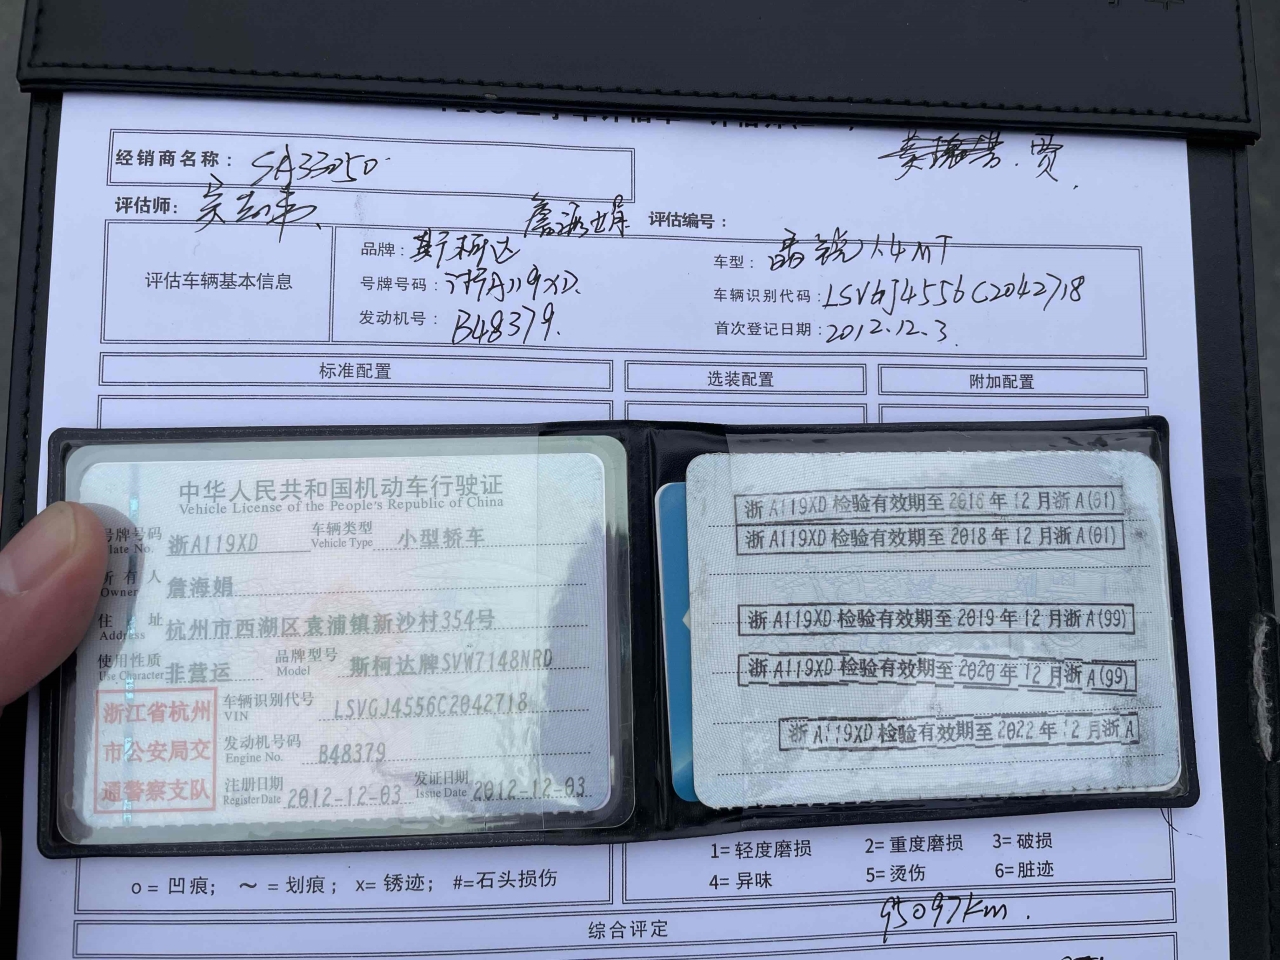 经销商名称： SA33250
贾
评估师：
詹海娟 评估编号：
评估车辆基本信息
品牌： 斯柯达 车型： 晶锐 1.4MT
号牌号码： 浙A119XD 车辆识别代码： LSVGJ4556C2042718
发动机号： B48379. 首次登记日期： 2012.12.3.
标准配置 选装配置 附加配置
中华人民共和国机动车行驶证
Vehicle License of the People's Republic of China
号牌号码 浙A119XD 车辆类型 小型轿车
Plate No. Vehicle Type
所有人 詹海娟
Owner
住址 杭州市西湖区袁浦镇新沙村354号
Address
使用性质 非营运 品牌型号 斯柯达牌SVW7148NRD
Use Character Model
浙江省杭州
市公安局交
通警察支队
车辆识别代号 LSVGJ4556C2042718
VIN
发动机号码 B48379
Engine No.
注册日期 2012-12-03 发证日期 2012-12-03
Register Date Issue Date
浙A119XD检验有效期至2016年12月浙A(01)
浙A119XD检验有效期至2018年12月浙A(01)
浙A119XD检验有效期至2019年12月浙A(99)
浙A119XD检验有效期至2020年12月浙A(99)
浙A119XD检验有效期至2022年12月浙A
o = 凹痕； ～ = 划痕； x= 锈迹； #=石头损伤
1= 轻度磨损 2= 重度磨损 3= 破损
4= 异味 5= 烫伤 6= 脏迹
综合评定 95097km.